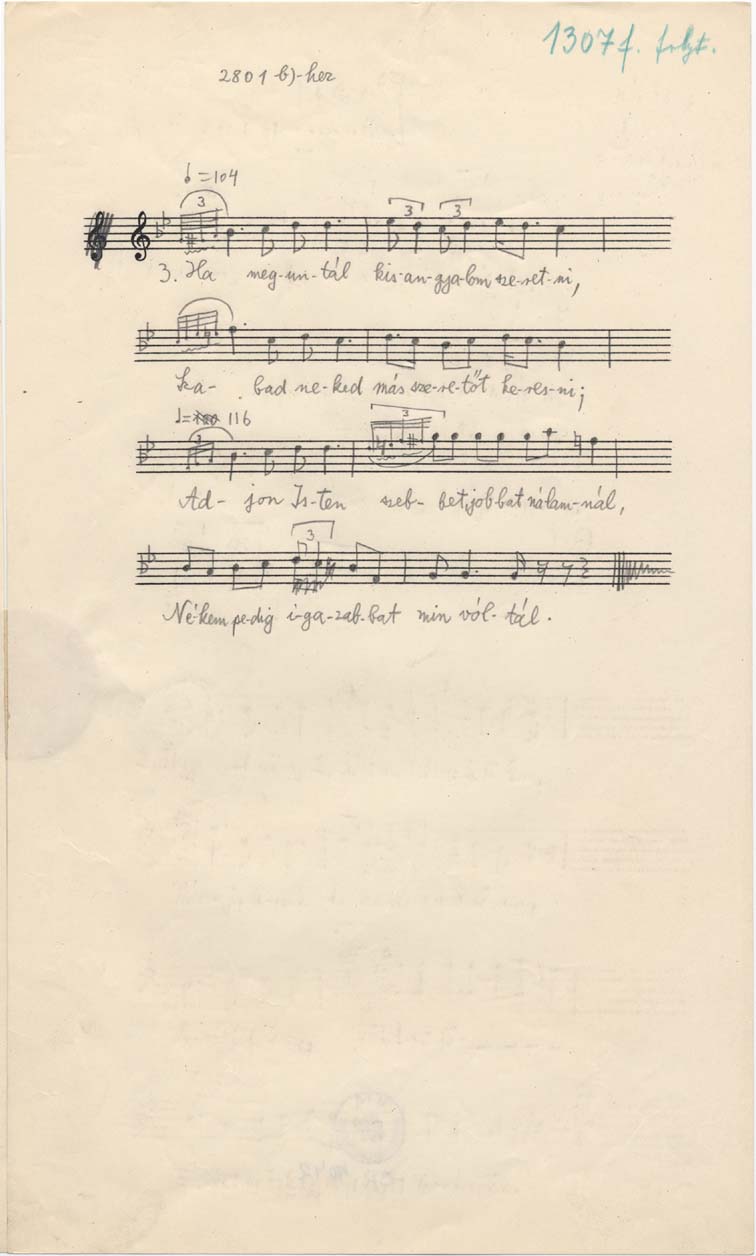 1307f. folyt.
2801 b)-hez
=104
3
3 3
3. Ha meg-un-tál kis-an-gya-lom sze-ret-ni,
Sza- bad ne-ked más sze-re-tőt ke-res-ni;
= 116
3
3
Ad- jon Is-ten szeb- bet, job-bat nálam-nál,
3
Né-kem pe-dig i-ga-zab-bat min vól-tál.